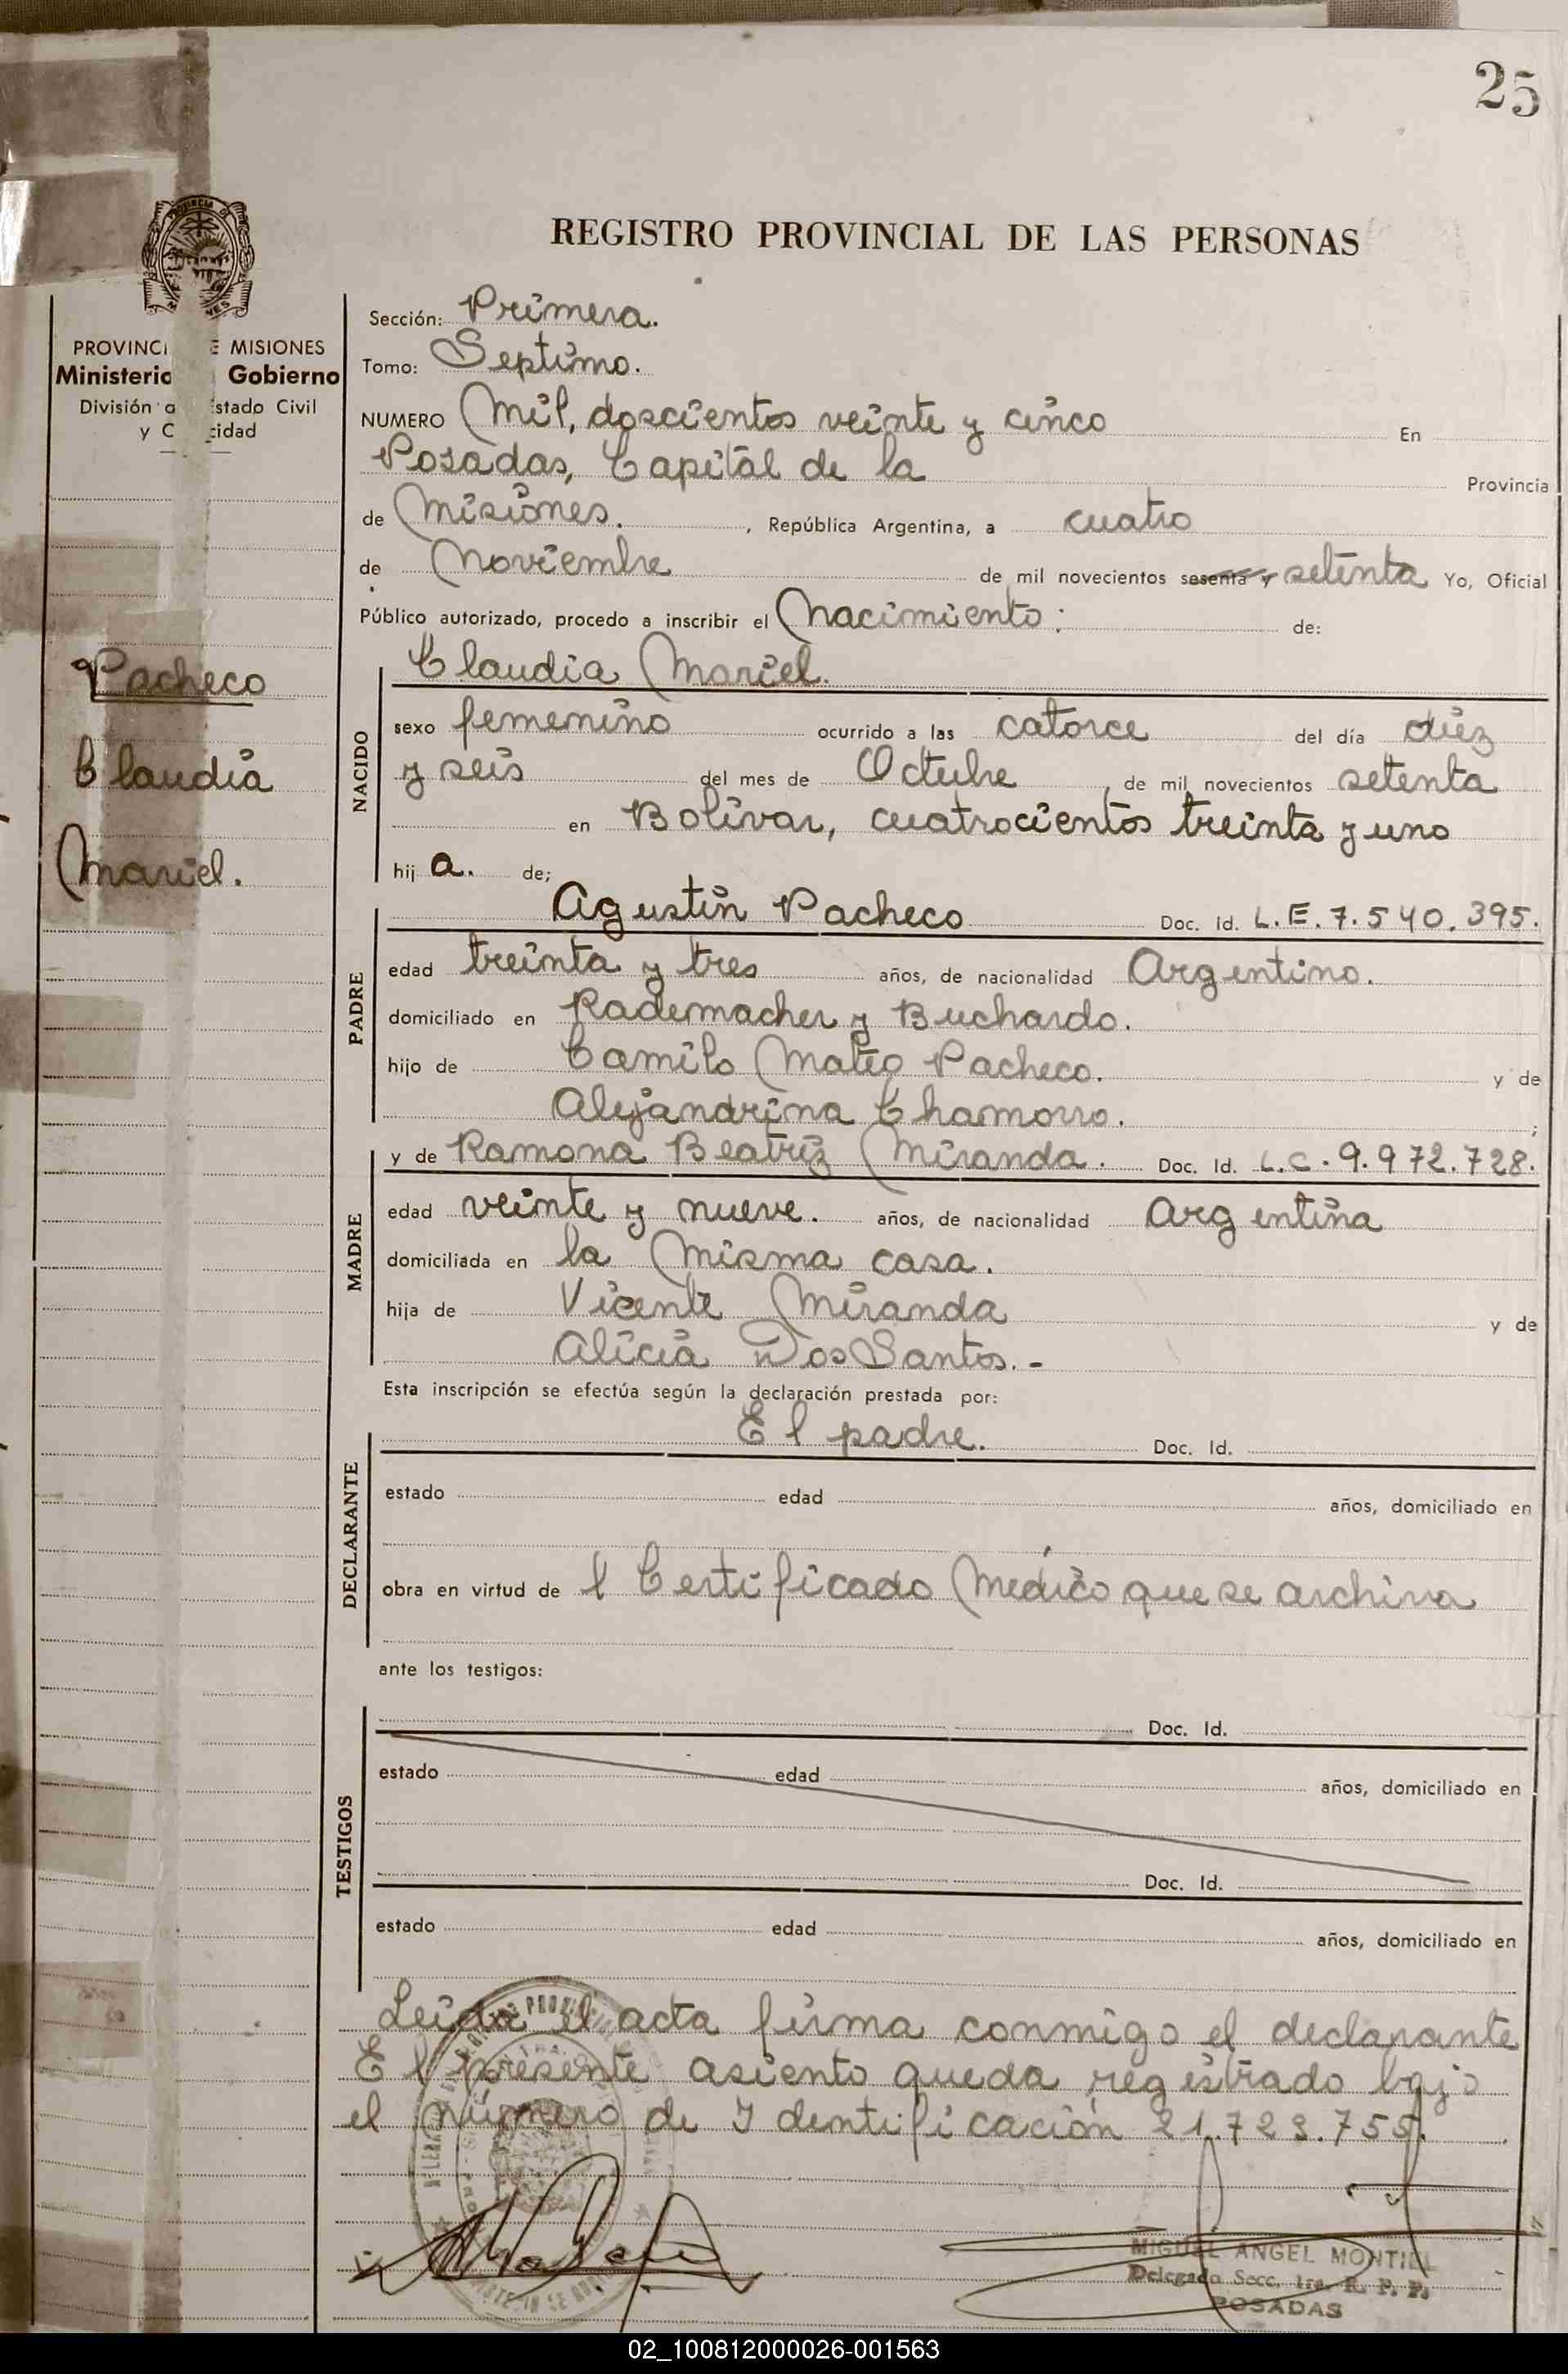 25
REGISTRO PROVINCIAL DE LAS PERSONAS
PROVINCI E MISIONES
Ministerio Gobierno
División stado Civil
y C cidad
Pacheco
Claudia
Mariel.
Sección: Primera.
Tomo: Septimo.
NUMERO Mil, doscientos veinte y cinco En
Posadas, Capital de la Provincia
de Misiones. , República Argentina, a cuatro
de Noviembre de mil novecientos sesenta y setenta Yo, Oficial
Público autorizado, procedo a inscribir el Nacimiento: de:
NACIDO
Claudia Mariel.
sexo femenino ocurrido a las catorce del día diez
y seis del mes de Octubre de mil novecientos setenta
en Bolivar, cuatrocientos treinta y uno
hij a. de;
PADRE
Agustin Pacheco Doc. Id. L.E. 7.540.395.
edad treinta y tres años, de nacionalidad Argentino.
domiciliado en Rademacher y Buchardo.
hijo de Camilo Mateo Pacheco. y de
Alejandrina Chamorro. ;
MADRE
y de Ramona Beatriz Miranda. Doc. Id. L.C. 9.972.728.
edad veinte y nueve. años, de nacionalidad Argentina
domiciliada en la misma casa.
hija de Vicente Miranda y de
Alicia Dos Santos.-
Esta inscripción se efectúa según la declaración prestada por:
DECLARANTE
El padre. Doc. Id.
estado edad años, domiciliado en
obra en virtud de l Certificado Medico que se archiva
ante los testigos:
TESTIGOS
Doc. Id.
estado edad años, domiciliado en
Doc. Id.
estado edad años, domiciliado en
Leida el acta firma conmigo el declarante
El presente asiento queda registrado bajo
el número de Identificación 21.723.755.
MIGUEL ANGEL MONTIEL
Delegado Secc. 1ra. R. P. P.
POSADAS
02_100812000026-001563